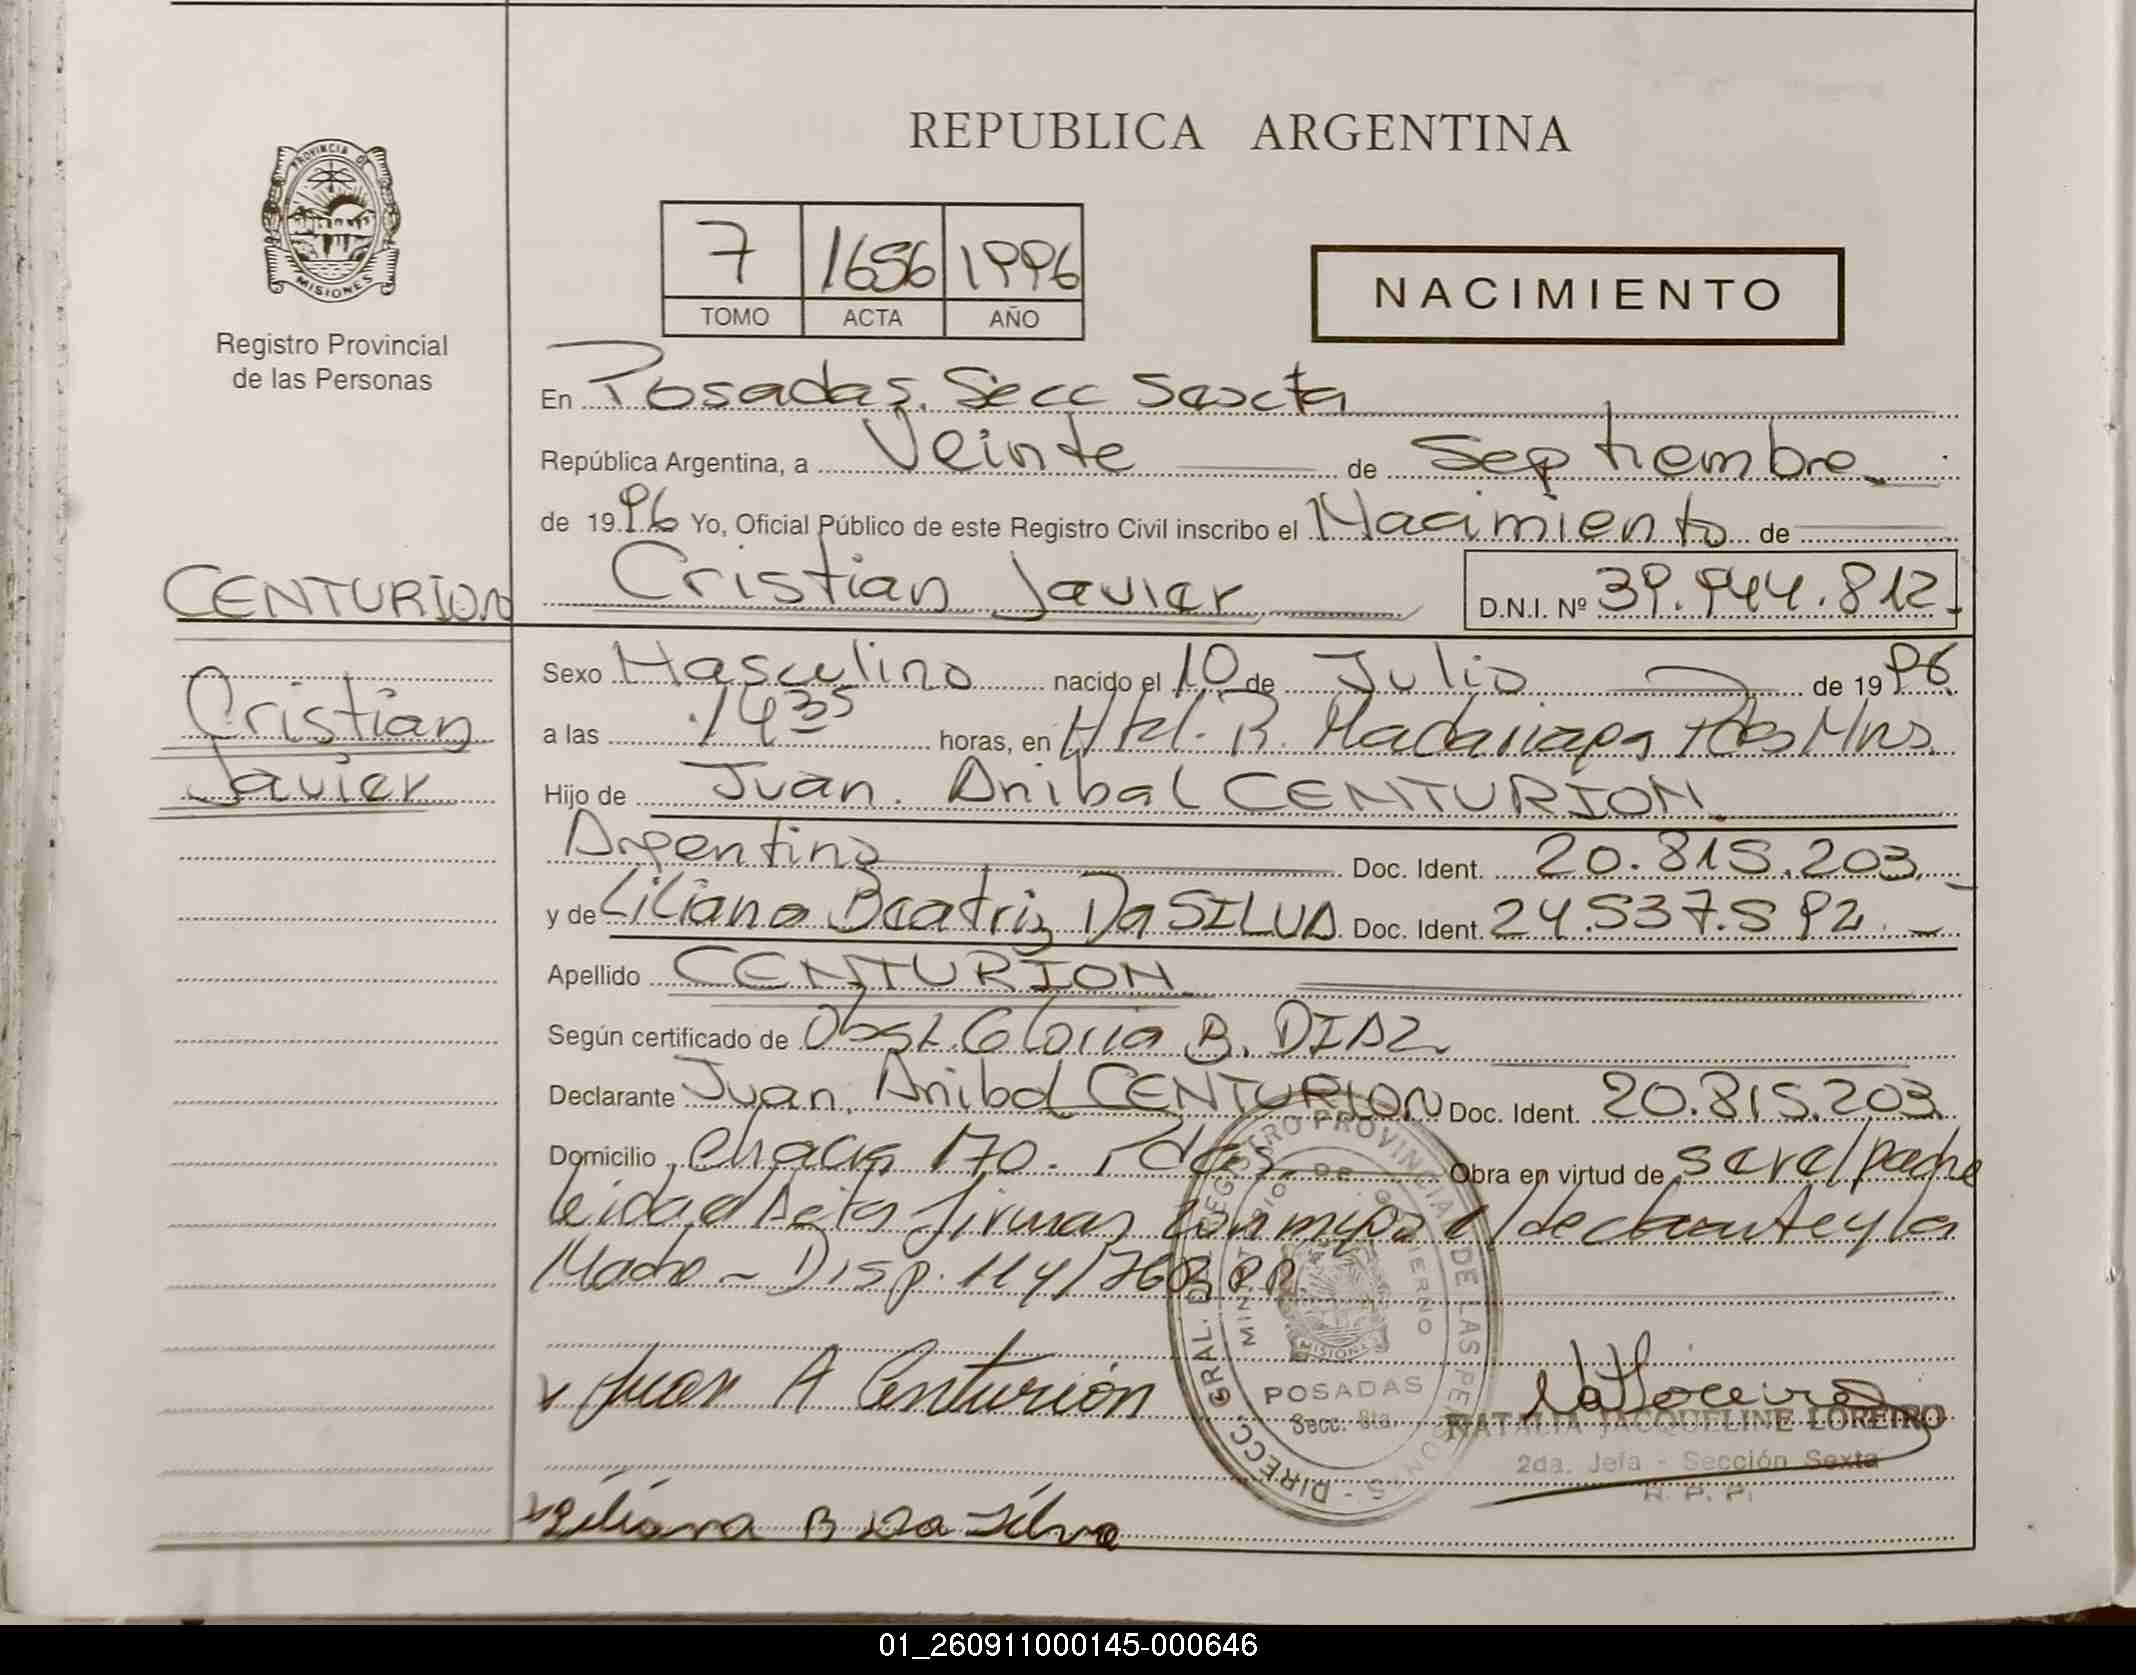 REPUBLICA ARGENTINA
PROVINCIA DE
MISIONES
Registro Provincial
de las Personas
7 1656 1996
TOMO ACTA AÑO
NACIMIENTO
En Posadas. Secc Sexta
República Argentina, a Veinte de Septiembre
de 1996 Yo, Oficial Público de este Registro Civil inscribo el Nacimiento de
Cristian Javier D.N.I. Nº 39.944.812
CENTURION
Cristian
Javier
Sexo Masculino nacido el 10 de Julio de 1996
a las 1435 horas, en Htal. R. Madariaga Pdas Mns
Hijo de Juan Anibal CENTURION
Argentino Doc. Ident. 20.815.203
y de Liliana Beatriz Da SILVA Doc. Ident. 24.537.592
Apellido CENTURION
Según certificado de Obst. Gloria B. DIAZ
Declarante Juan Anibal CENTURION Doc. Ident. 20.815.203
Domicilio Chacra 170. Pdas Obra en virtud de ser el padre
leida el Acta firman conmigo el declarante y la
Madre - Disp.
Juan A Centurión
Liliana B Da Silva
DIRECC. GRAL. DEL REGISTRO PROVINCIAL DE LAS PERSONAS
MINISTERIO DE GOBIERNO
MISIONES
POSADAS
Secc. 6ta.
NATALIA JACQUELINE LOREIRO
2da. Jefa - Sección Sexta
R. P. P.
01_260911000145-000646